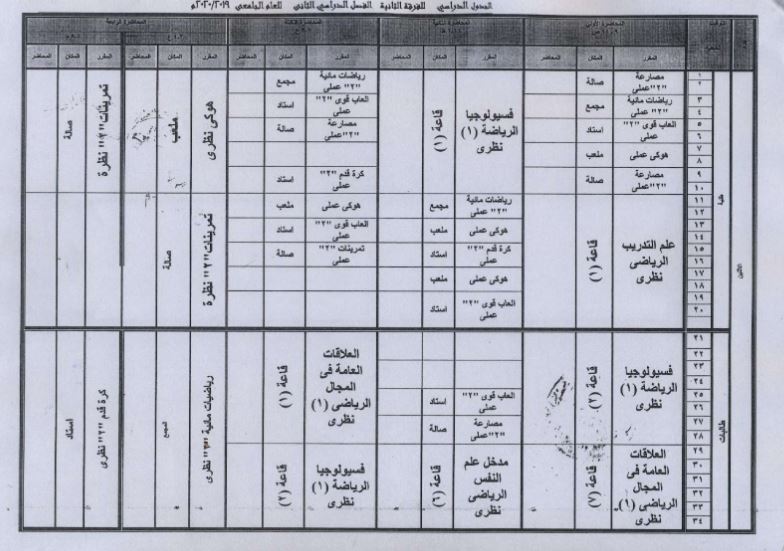 الجدول الدراسي للفرقة الثانية الفصل الدراسي الثاني للعام الجامعي ٢٠٢٠/٢٠١٩م
المحاضرة الأولى
المحاضرة الثانية
المحاضرة الثالثة
المحاضرة الرابعة
المقرر المكان المحاضر المقرر المكان المحاضر المقرر المكان المحاضر المقرر المكان المحاضر المقرر المكان المحاضر
طلبة
١
٢
مصارعة "٢"عملى
صالة
٣
٤
رياضات مائية "٢" عملى
مجمع
٥
٦
العاب قوى "٢" عملى
استاد
٧
٨
هوكى عملى
ملعب
٩
١٠
مصارعة "٢"عملى
صالة
فسيولوجيا
الرياضة (١)
نظرى
قاعة (١)
رياضات مائية "٢" عملى
مجمع
العاب قوى "٢" عملى
استاد
مصارعة "٢"عملى
صالة
كرة قدم "٢" عملى
استاد
هوكى نظرى
ملعب
تمرينات "٢" نظرة
صالة
١١
١٢
١٣
١٤
١٥
١٦
١٧
١٨
١٩
٢٠
علم التدريب
الرياضى
نظرى
قاعة (١)
رياضات مائية "٢" عملى
مجمع
هوكى عملى
ملعب
كرة قدم "٢" عملى
استاد
هوكى عملى
ملعب
العاب قوى "٢" عملى
استاد
هوكى عملى
ملعب
العاب قوى "٢" عملى
استاد
تمرينات "٢" عملى
صالة
تمرينات "٢" نظرة
صالة
طالبات
٢١
٢٢
٢٣
٢٤
٢٥
٢٦
٢٧
٢٨
فسيولوجيا
الرياضة (١)
نظرى
قاعة (٢)
العاب قوى "٢" عملى
استاد
مصارعة "٢"عملى
صالة
العلاقات
العامة فى
المجال
الرياضى (١)
نظرى
قاعة (١)
رياضيات مائية "٢" نظرى
المجمع
كرة قدم "٢" نظرى
استاد
٢٩
٣٠
٣١
٣٢
٣٣
٣٤
العلاقات
العامة فى
المجال
الرياضى (١)
نظرى
قاعة (٧)
مدخل علم
النفس
الرياضى
نظرى
قاعة (٦)
فسيولوجيا
الرياضة (١)
نظرى
قاعة (٢)